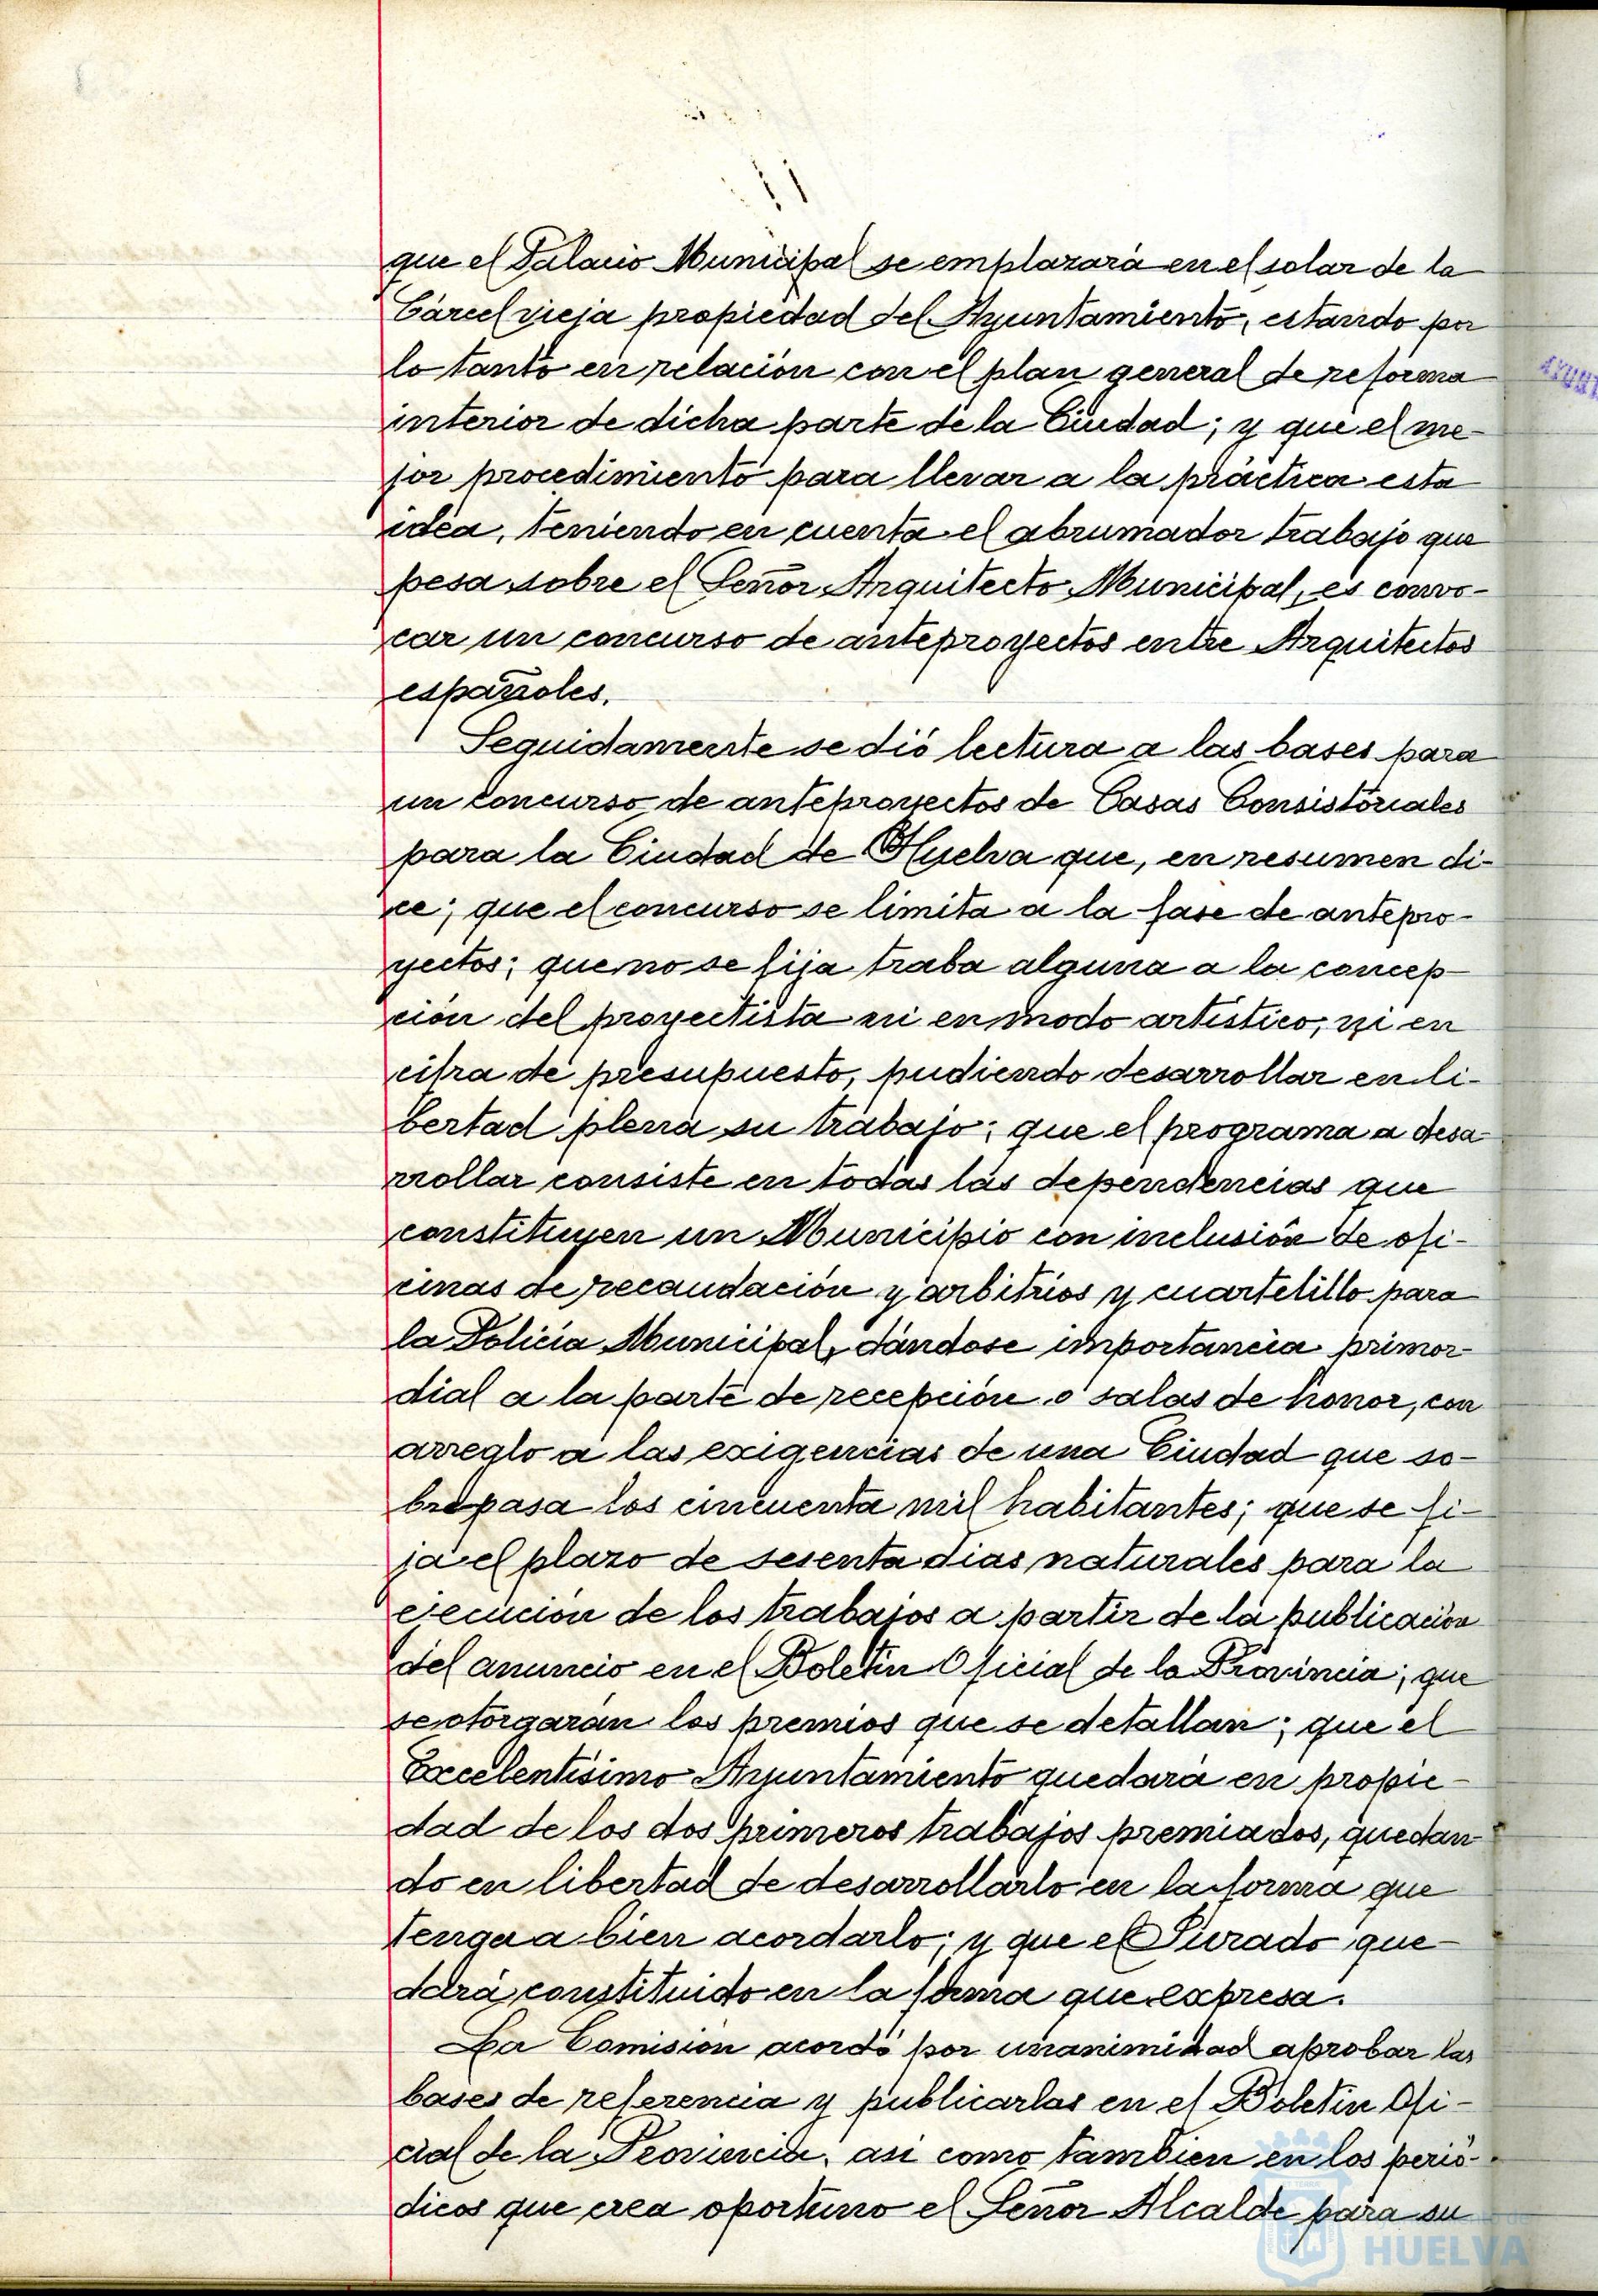 que el Palacio Municipal se emplazará en el solar de la
Cárcel vieja propiedad del Ayuntamiento, estando por
lo tanto en relación con el plan general de reforma
interior de dicha parte de la Ciudad; y que el me-
jor procedimiento para llevar a la práctica esta
idéa, teniendo en cuenta el abrumador trabajo que
pesa sobre el Señor Arquitecto Municipal, es convo-
car un concurso de anteproyectos entre Arquitectos
españoles.
Seguidamente se dió lectura a las bases para
un concurso de anteproyectos de Casas Consistoriales
para la Ciudad de Huelva que, en resumen di-
ce; que el concurso se limita a la fase de antepro-
yectos; que no se fija traba alguna a la concep-
ción del proyectista ni en modo artístico, ni en
cifra de presupuesto, pudiendo desarrollar en li-
bertad plena su trabajo; que el programa a desa-
rrollar consiste en todas las dependencias que
constituyen un Municipio con inclusión de ofi-
cinas de recaudación y arbitrios y cuartelillo para
la Policía Municipal, dándose importancia primor-
dial a la parte de recepción o salas de honor, con
arreglo a las exigencias de una Ciudad que so-
brepasa los cincuenta mil habitantes; que se fi-
ja el plazo de sesenta dias naturales para la
ejecución de los trabajos a partir de la publicación
del anuncio en el Boletín Oficial de la Provincia; que
se otorgarán los premios que se detallan; que el
Excelentísimo Ayuntamiento quedará en propie-
dad de los dos primeros trabajos premiados, quedan-
do en libertad de desarrollarlo en la forma que
tenga a bien acordarlo; y que el Jurado que-
dará constituido en la forma que expresa.
La Comisión acordó por unanimidad aprobar las
bases de referencia y publicarlas en el Boletín Ofi-
cial de la Provincia, asi como tambien en los perió-
dicos que crea oportuno el Señor Alcalde para su
HUELVA